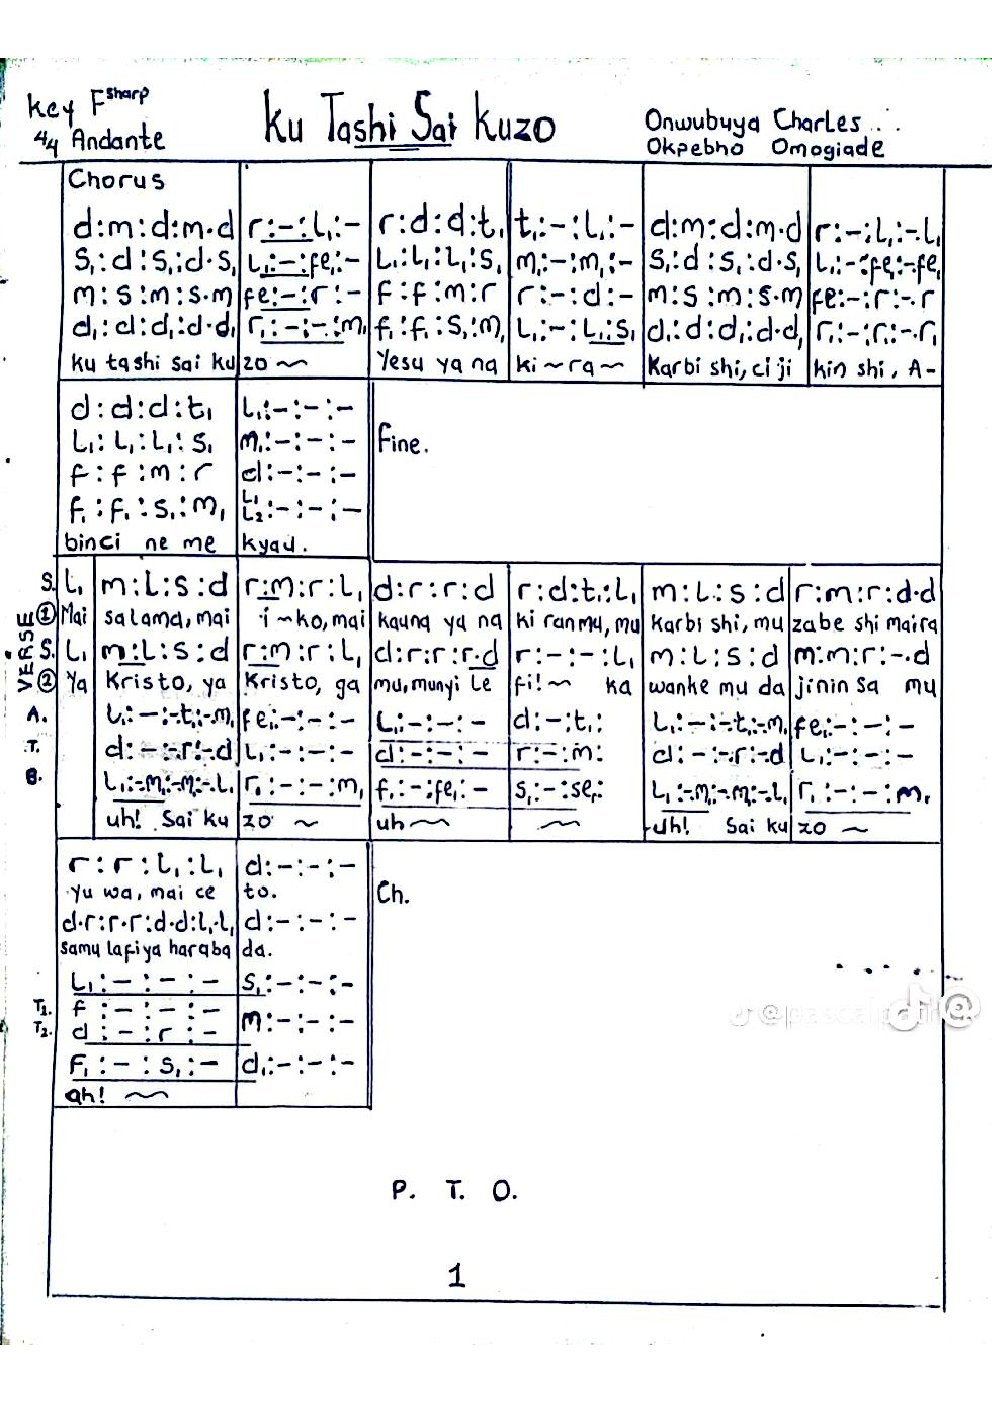 Key F sharp
4/4 Andante
Ku Tashi Sai Kuzo
Onwubuya Charles...
Okpebho Omogiade
Chorus
d:m:d:m.d | r:-:L₁:- | r:d:d:t₁ | t₁:-:L₁:- | d:m:d:m.d | r:-:L₁:-.L₁
S₁:d:S₁:d.S₁ | L₁:-:fe₁:- | L₁:L₁:L₁:S₁ | m₁:-:m₁:- | S₁:d:S₁:d.S₁ | L₁:-:fe₁:-.fe₁
m:S:m:S.m | fe:-:r:- | f:f:m:r | r:-:d:- | m:S:m:S.m | fe:-:r:-.r
d₁:d:d₁:d.d₁ | r₁:-:-:m₁ | f₁:f₁:S₁:m₁ | L₁:-:L₁:S₁ | d₁:d:d₁:d.d₁ | r₁:-:r₁:-.r₁
ku tashi sai ku | zo ~ | Yesu ya na | ki ~ ra ~ | Karbi shi, ci ji | kin shi, A-
d:d:d:t₁ | L₁:-:-:-
L₁:L₁:L₁:S₁ | m₁:-:-:- | Fine.
f:f:m:r | d:-:-:-
f₁:f₁:S₁:m₁ | L₁ L₂:-:-:-
binci ne me | kyau.
VERSE
S. L₁ | m:L:S:d | r:m:r:L₁ | d:r:r:d | r:d:t₁:L₁ | m:L:S:d | r:m:r:d.d
① Mai | salama, mai | i~ko, mai | kauna ya na | ki ranmu, mu | Karbi shi, mu | zabe shi maira
S. L₁ | m:L:S:d | r:m:r:L₁ | d:r:r:r.d | r:-:-:L₁ | m:L:S:d | m:m:r:-.d
② Ya | Kristo, ya | Kristo, ga | mu, munyi le | fi! ~ ka | wanke mu da | jinin sa mu
A. L₁:-:-t₁:-m₁ | fe₁:-:-:- | L₁:-:-:- | d:-:t₁: | L₁:-:-t₁:-m₁ | fe₁:-:-:-
T. d:-:-r:-d | L₁:-:-:- | d:-:-:- | r:-:m: | d:-:-r:-d | L₁:-:-:-
B. L₁:-m₁:-m₁:-.L₁ | r₁:-:-:m₁ | f₁:-:fe₁:- | S₁:-:se₁: | L₁:-m₁:-m₁:-.L₁ | r₁:-:-:m₁
uh! Sai ku | zo ~ | uh ~ | ~ | uh! Sai ku | zo ~
r:r:L₁:L₁ | d:-:-:-
yu wa, mai ce | to. | Ch.
d.r:r.r:d.d:L₁.L₁ | d:-:-:-
samu lafiya haraba | da.
L₁:-:-:- | S₁:-:-:-
T₂. f:-:-:-
T₂. d:-:r:- | m:-:-:-
F₁:-:S₁:- | d₁:-:-:-
ah! ~
P. T. O.
1